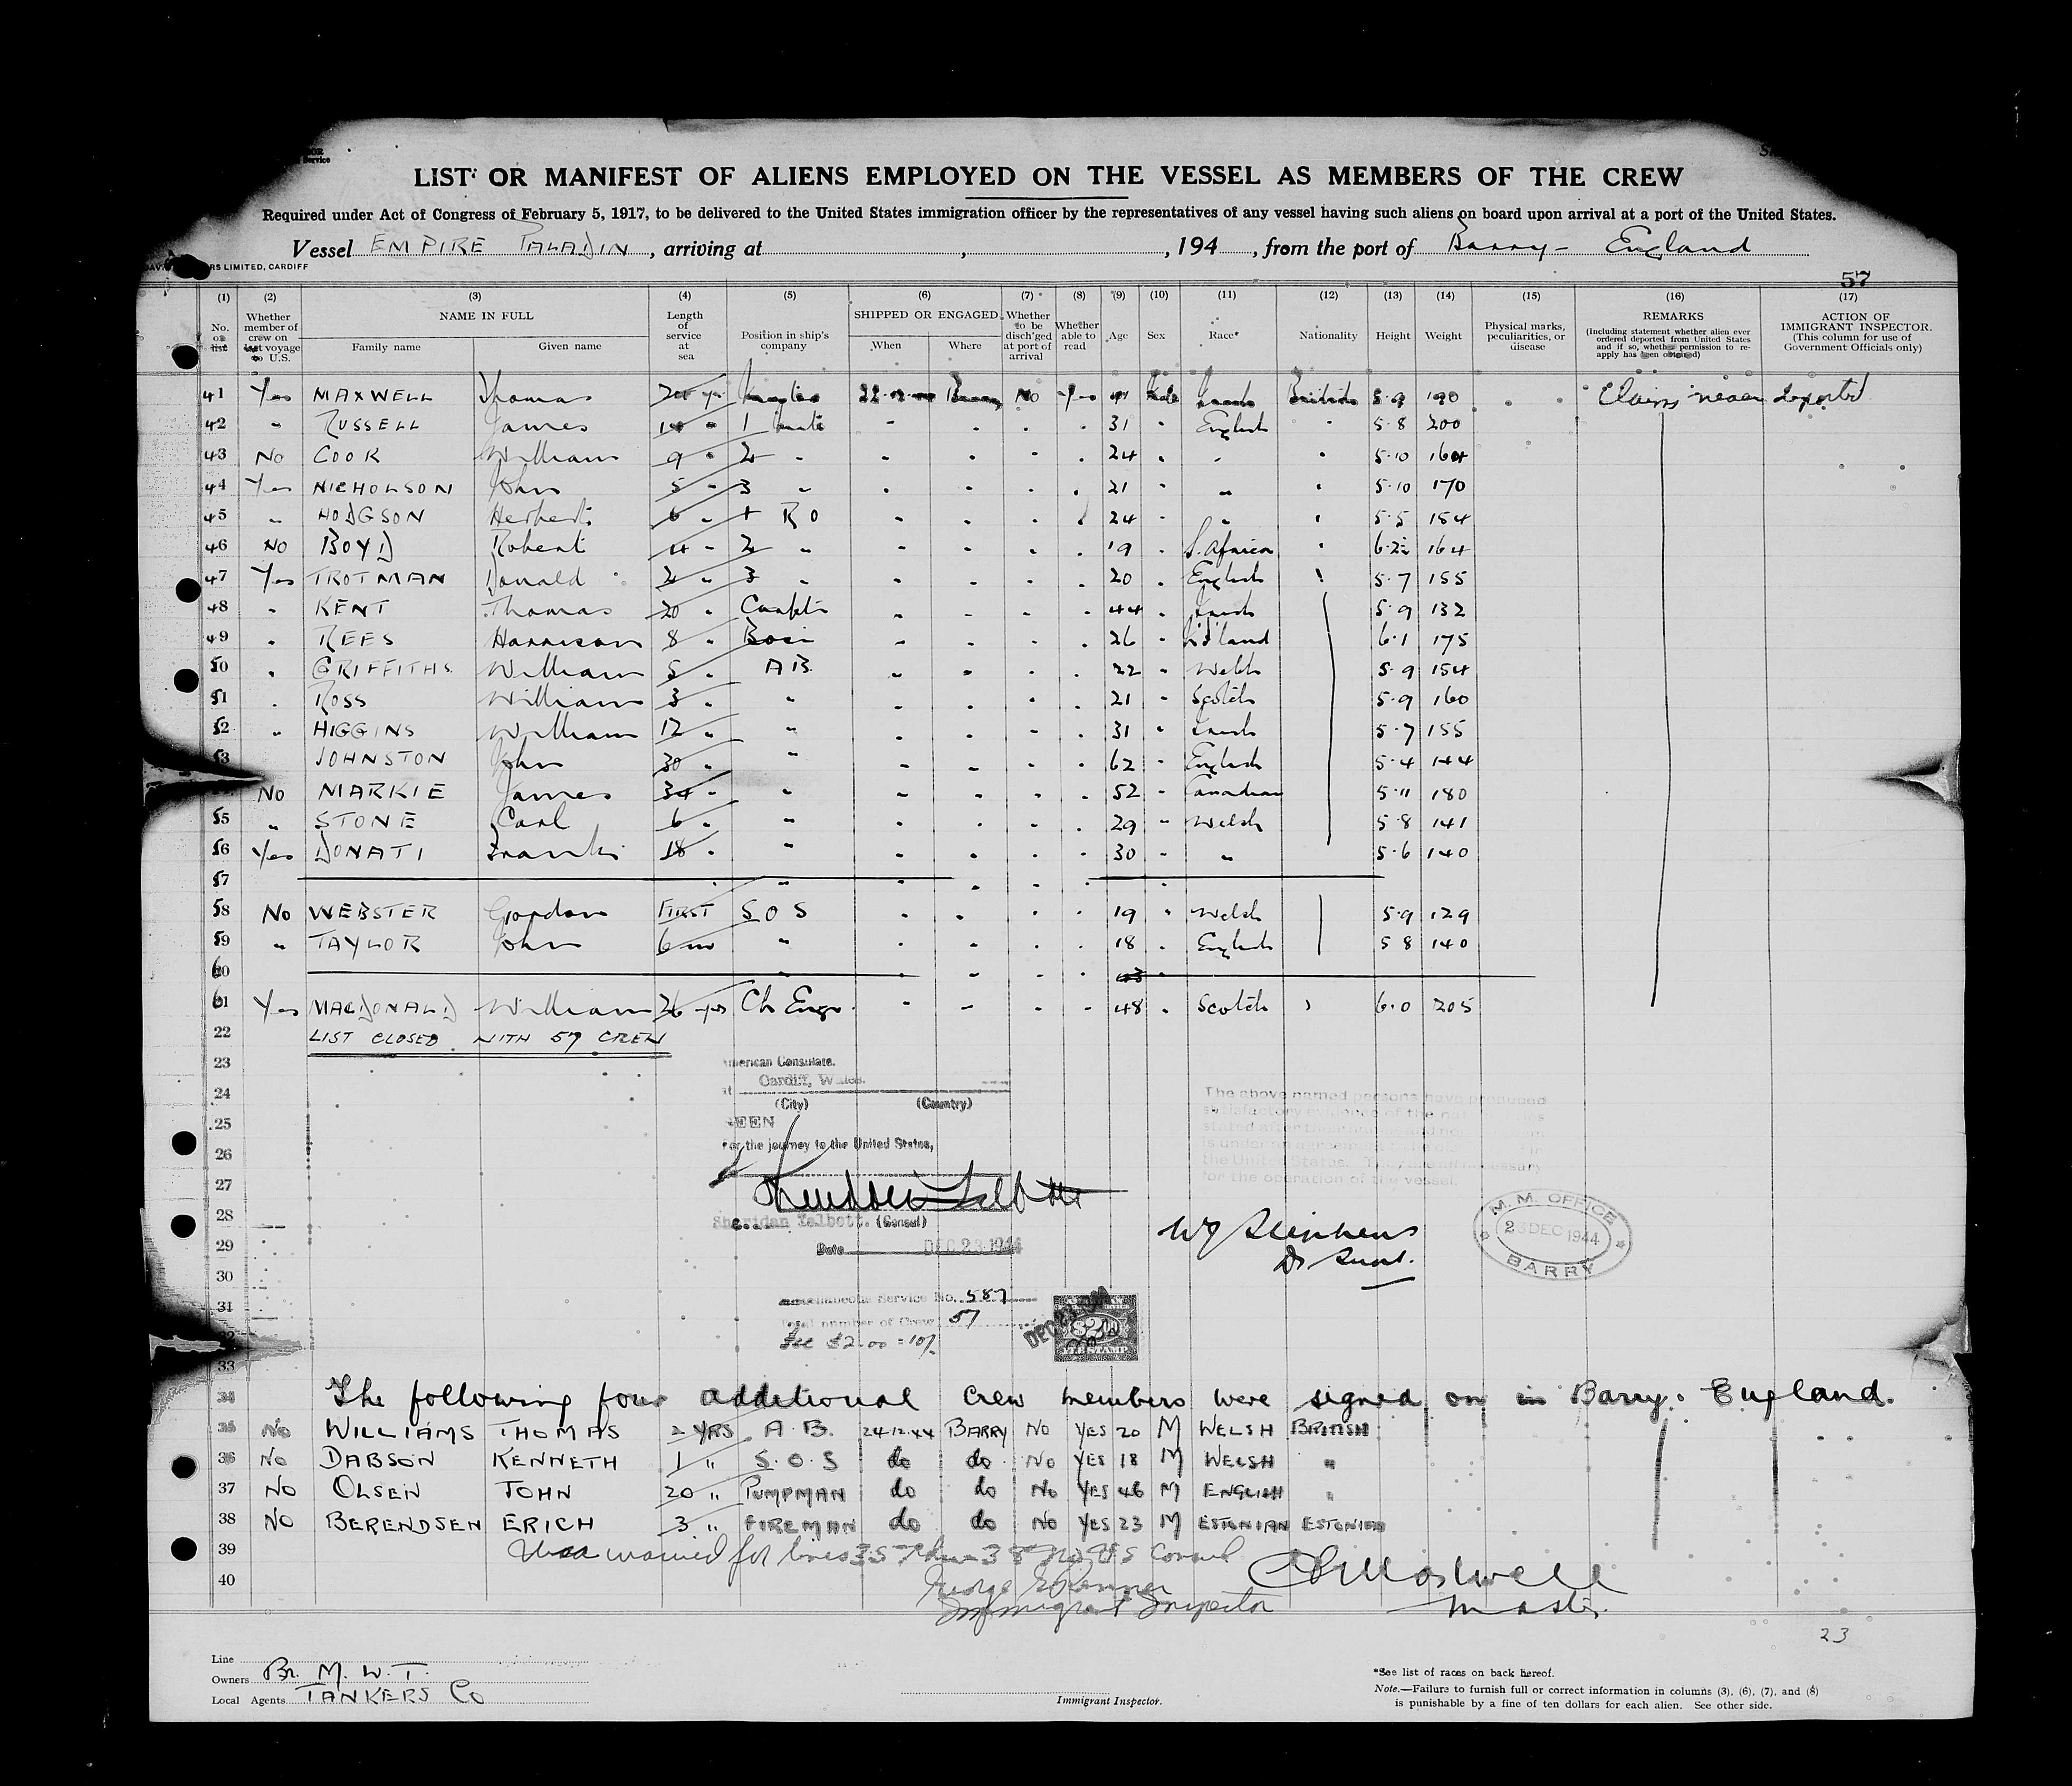 LIST OR MANIFEST OF ALIENS EMPLOYED ON THE VESSEL AS MEMBERS OF THE CREW
Required under Act of Congress of February 5, 1917, to be delivered to the United States immigration officer by the representatives of any vessel having such aliens on board upon arrival at a port of the United States.
Vessel EMPIRE PALADIN, arriving at , 194 , from the port of Barry - England
RS LIMITED, CARDIFF
57
(1) (2) (3) (4) (5) (6) (7) (8) (9) (10) (11) (12) (13) (14) (15) (16) (17)
No. on list Whether member of crew on last voyage to U.S. NAME IN FULL Family name Given name Length of service at sea Position in ship's company SHIPPED OR ENGAGED When Where Whether to be disch'ged at port of arrival Whether able to read Age Sex Race* Nationality Height Weight Physical marks, peculiarities, or disease REMARKS (Including statement whether alien ever ordered deported from United States and if so, whether permission to re-apply has been obtained) ACTION OF IMMIGRANT INSPECTOR. (This column for use of Government Officials only)
41 Yes MAXWELL Thomas No Yes Male British 5.9 190 Claims never deported
42 " RUSSELL James 1 Mate 31 English 5.8 200
43 No COOK William 9 " 2 " 24 " 5.10
44 Yes NICHOLSON John 5 " 3 " 21 " 5.10 170
45 " HODGSON Herbert 6 " 1 RO 24 " 5.5 154
46 No BOYD Robert 4 " 2 " 19 S. African 6.2½ 164
47 Yes TROTMAN Donald 2 " 3 " 20 English 5.7 155
48 " KENT Thomas 20 " 44 5.9 132
49 " REES Harrison 8 " Bosn 26 6.1 175
50 " GRIFFITHS William 5 " AB 22 Welsh 5.9 154
51 " ROSS William 3 " " 21 Scotch 5.9 160
52 " HIGGINS William 12 " " 31 5.7 155
53 JOHNSTON John 30 " " 62 English 5.4 144
No MARKIE James 34 " " 52 Canadian 5.11 180
55 " STONE Carl 6 " " 29 Welsh 5.8 141
56 Yes DONATI Frank 18 " " 30 " 5.6 140
57
58 No WEBSTER Gordon FIRST S O S 19 Welsh 5.9 129
59 " TAYLOR John 6 m " 18 English 5 8 140
60
61 Yes MACDONALD William 26 yrs Ch Engr. 48 Scotch 6.0 205
22 LIST CLOSED WITH 57 CREW
23 American Consulate.
24 at Cardiff, Wales.
(City) (Country)
25 SEEN
26 For the journey to the United States,
27
28 Sheridan Talbott. (Consul)
29 Date DEC 23 1944
The above named persons have produced
satisfactory evidence of the
stated after their
is under
the United States.
for the operation of the vessel.
W J Stephens
M. M. OFFICE
23 DEC 1944
BARRY
30
31 Miscellaneous Service No. 587
Total number of Crew 57
32 Fee $2.00 = 10/.
33
34 The following four additional crew members were signed on in Barry. England.
35 No WILLIAMS THOMAS 2 YRS A.B. 24.12.44 BARRY No YES 20 M WELSH BRITISH
36 No DABSON KENNETH 1 " S.O.S do do No YES 18 M WELSH "
37 No OLSEN JOHN 20 " PUMPMAN do do No YES 46 M ENGLISH "
38 No BERENDSEN ERICH 3 " FIREMAN do do No YES 23 M ESTONIAN ESTONIAN
39 Visa waived for lines 35 Thru 38 No U S Consul
40 Immigrant Inspector
Master.
23
Line
Owners Br. M. W. T.
Local Agents TANKERS Co
Immigrant Inspector.
*See list of races on back hereof.
Note.—Failure to furnish full or correct information in columns (3), (6), (7), and (8)
is punishable by a fine of ten dollars for each alien. See other side.